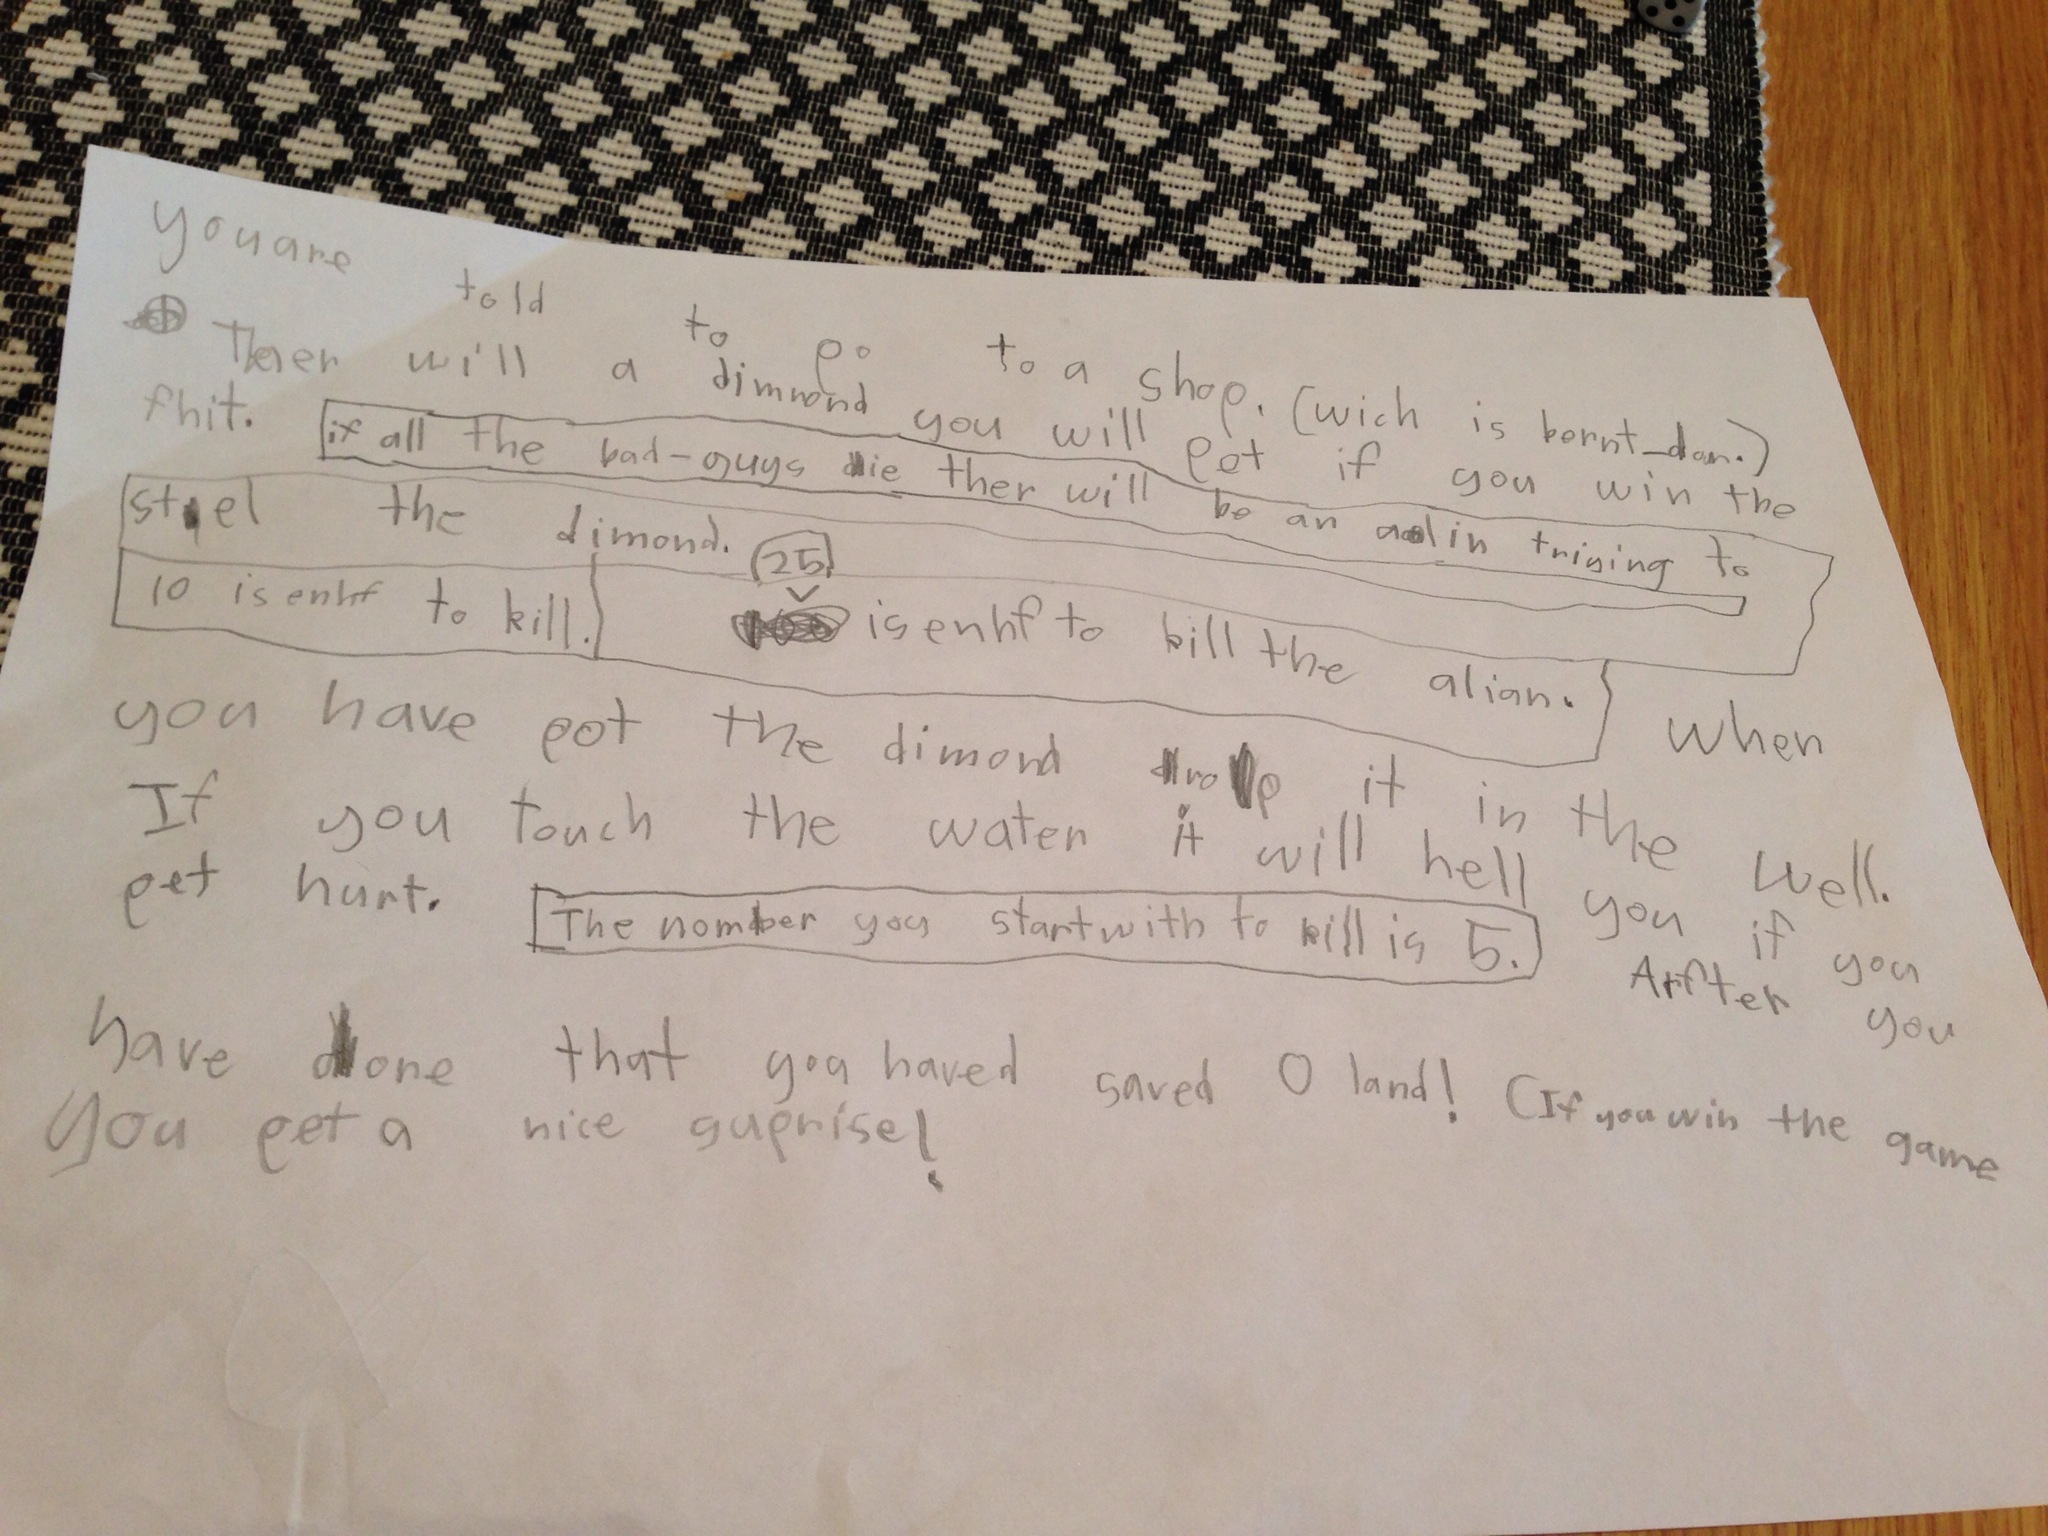 you are told to go to a shop. (wich is bornt_don.)
Therer will a dimond you will get if you win the
fhit. if all the bad-guys die ther will be an alin triying to
stel the dimond. 25
10 is enhf to kill. is enhf to kill the alian. when
you have got the dimond drop it in the well.
If you touch the water it will hell you if you
get hurt. The nomber you start with to kill is 5. Arfter you
have done that you haved saved O land! (If you win the game
you get a nice suprise!